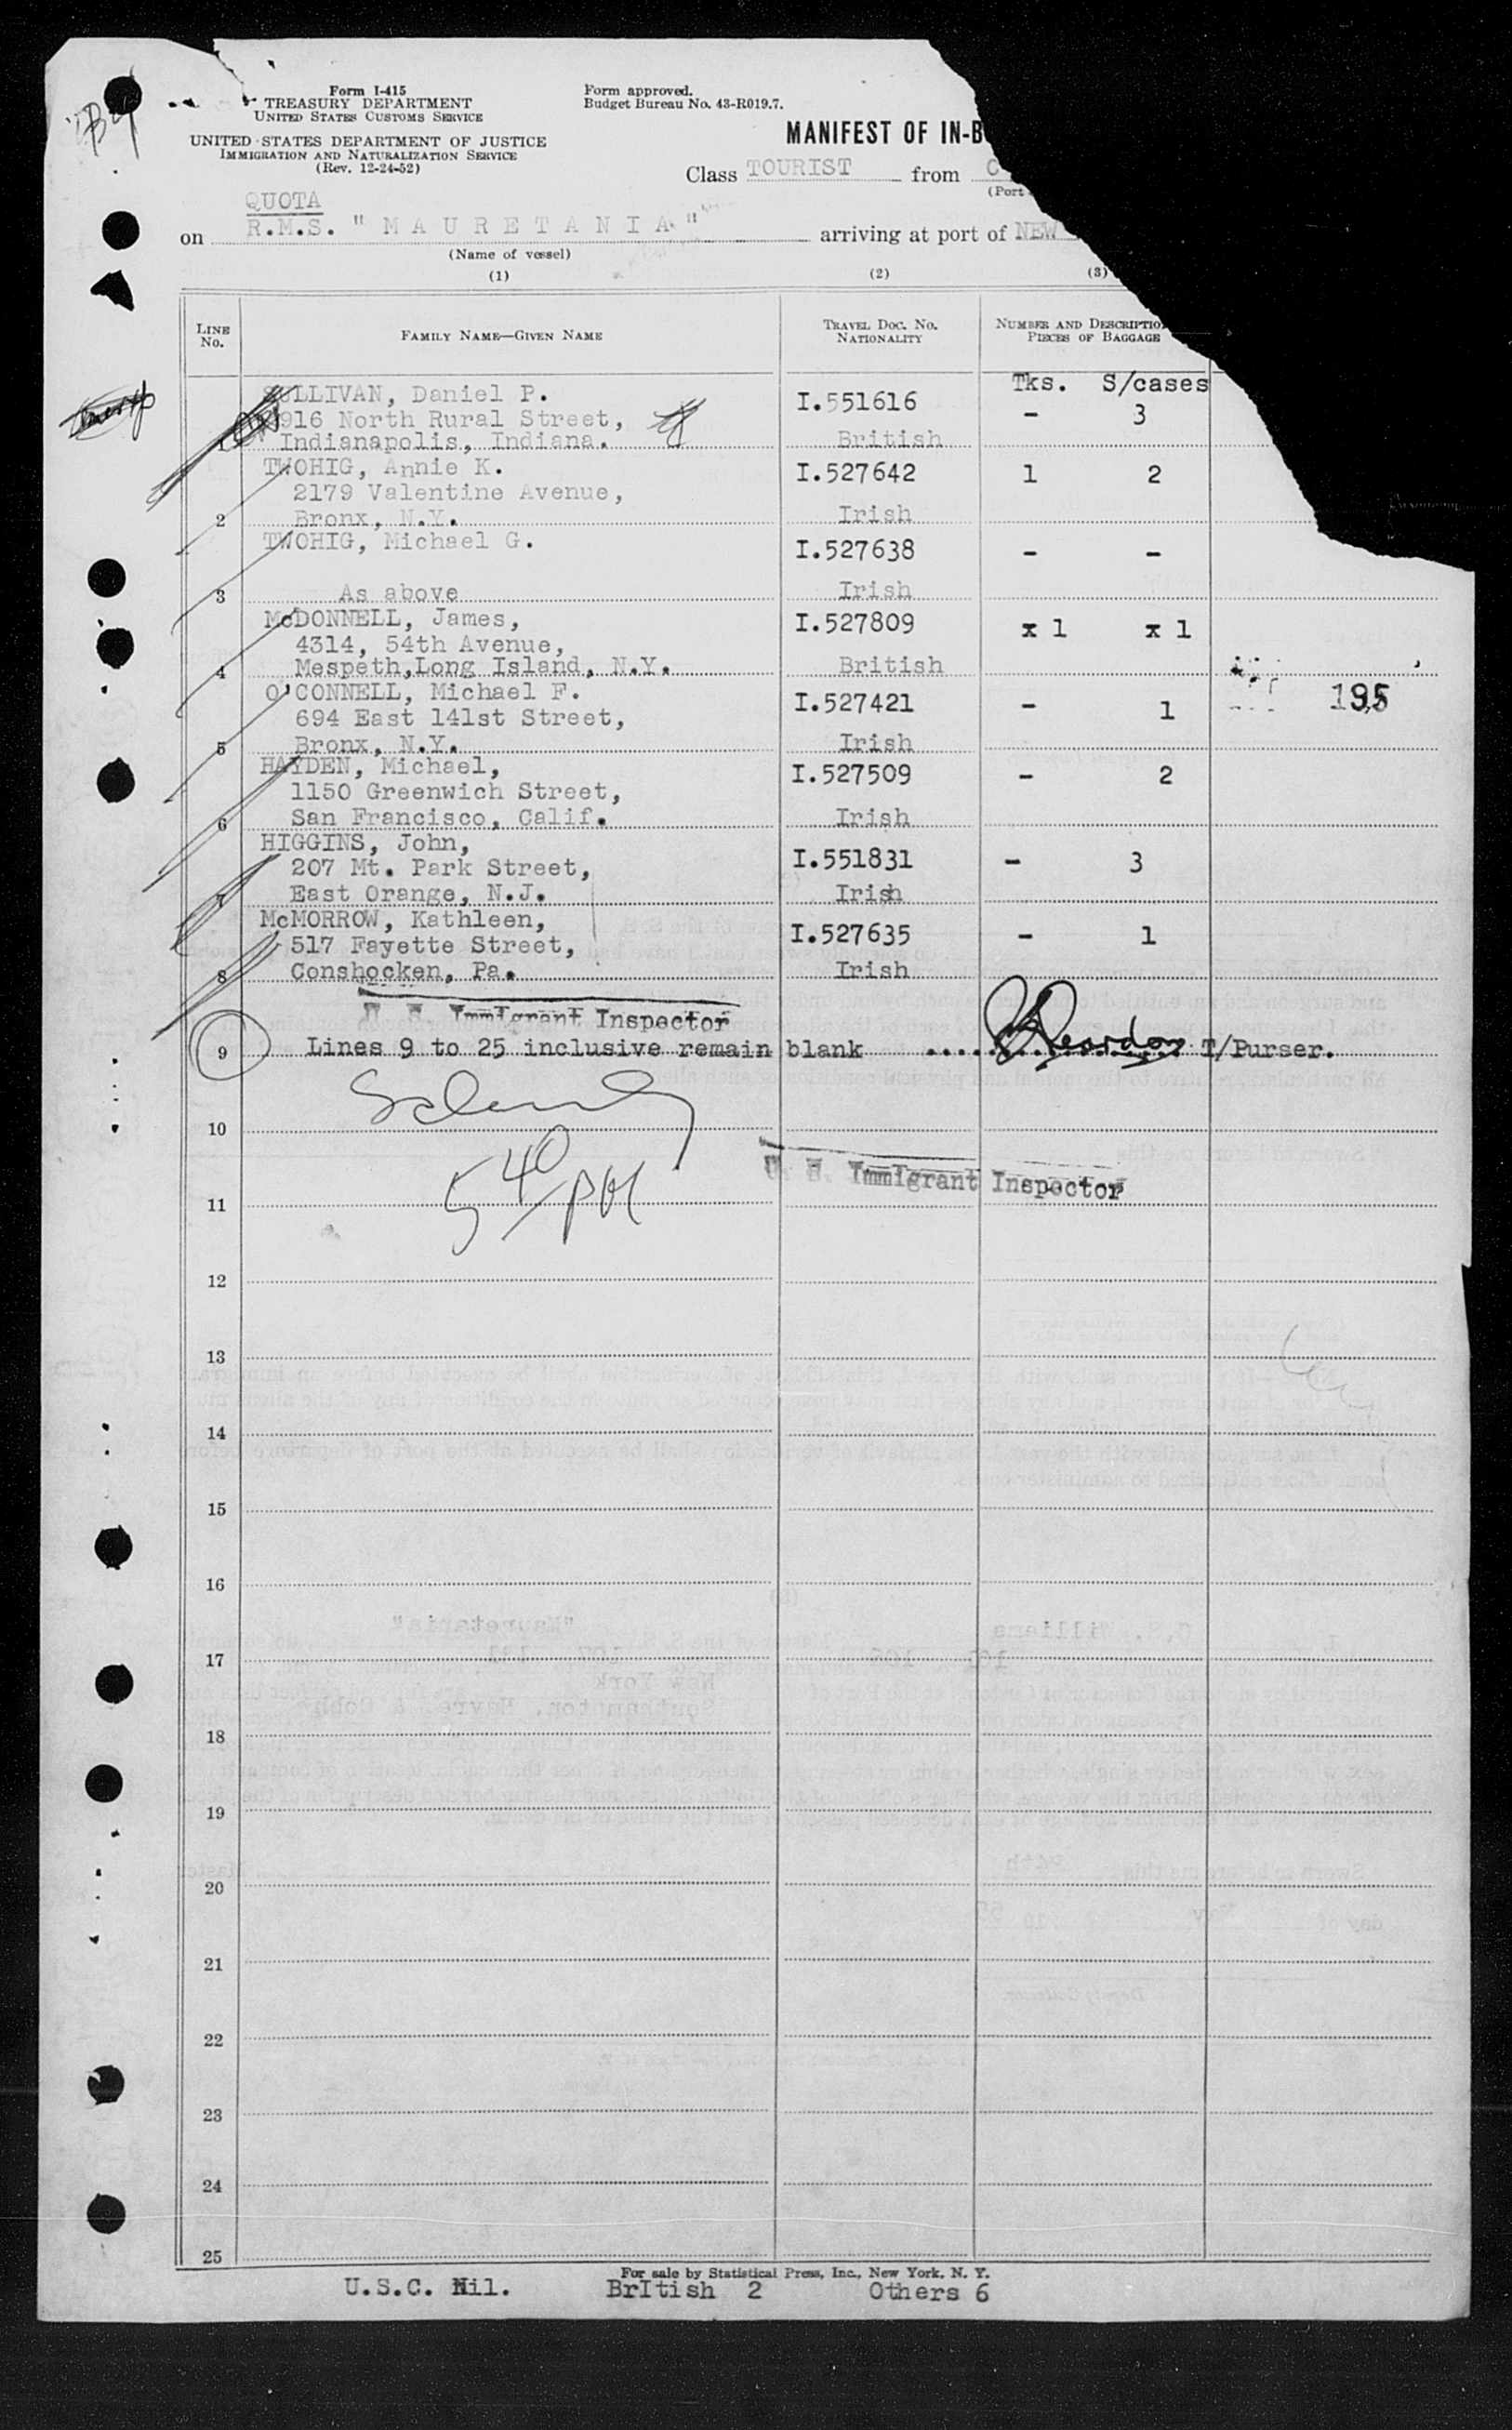 Form I-415
TREASURY DEPARTMENT
UNITED STATES CUSTOMS SERVICE
UNITED STATES DEPARTMENT OF JUSTICE
IMMIGRATION AND NATURALIZATION SERVICE
(Rev. 12-24-52)
Form approved.
Budget Bureau No. 43-R019.7.
MANIFEST OF IN-B
Class TOURIST from C
(Port
QUOTA
on R.M.S. "MAURETANIA" arriving at port of NEW
(Name of vessel)
(1) (2) (3)
LINE No. FAMILY NAME—GIVEN NAME TRAVEL DOC. NO. NATIONALITY NUMBER AND DESCRIPTIO PIECES OF BAGGAGE
Tks. S/cases
SULLIVAN, Daniel P. I.551616 - 3
916 North Rural Street,
1 Indianapolis, Indiana. British
TWOHIG, Annie K. I.527642 1 2
2179 Valentine Avenue,
2 Bronx, N.Y. Irish
TWOHIG, Michael G. I.527638 - -
3 As above Irish
McDONNELL, James, I.527809 x 1 x 1
4314, 54th Avenue,
4 Mespeth,Long Island, N.Y. British
O'CONNELL, Michael F. I.527421 - 1 195
694 East 141st Street,
5 Bronx, N.Y. Irish
HAYDEN, Michael, I.527509 - 2
1150 Greenwich Street,
6 San Francisco, Calif. Irish
HIGGINS, John, I.551831 - 3
207 Mt. Park Street,
7 East Orange, N.J. Irish
McMORROW, Kathleen, I.527635 - 1
517 Fayette Street,
8 Conshocken, Pa. Irish
U. S. Immigrant Inspector
9 Lines 9 to 25 inclusive remain blank Reardon T/Purser.
10
5 40/PM
U. S. Immigrant Inspector
11
12
13
14
15
16
17
18
19
20
21
22
23
24
25
For sale by Statistical Press, Inc., New York, N. Y.
U.S.C. Nil. BrItish 2 Others 6